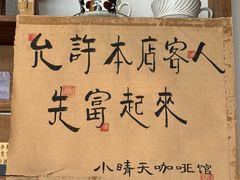 允許本店客人
先富起來
小晴天咖啡馆